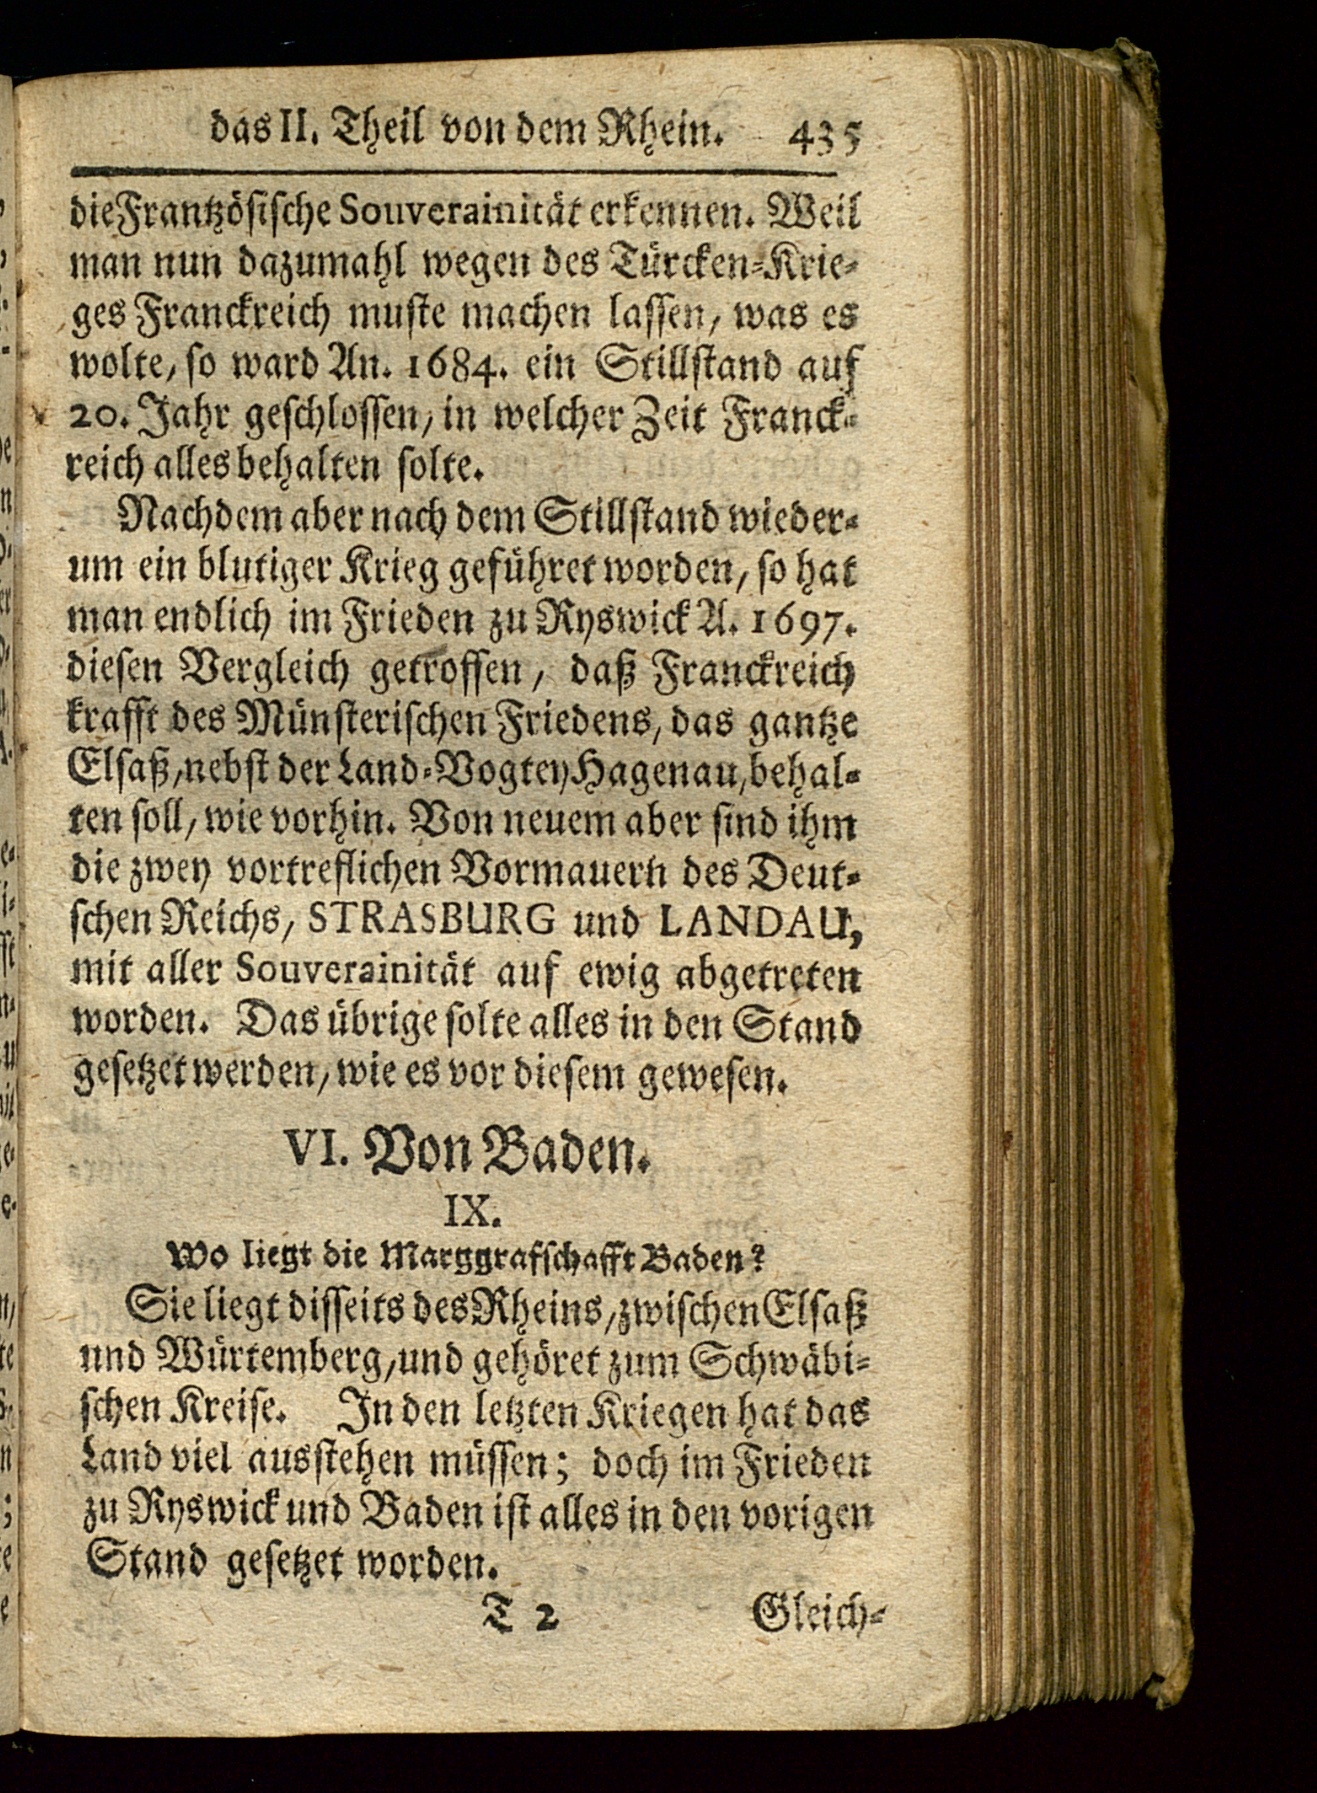 das II. Theil von dem Rhein. 435
die Frantzösische Souverainität erkennen. Weil
man nun dazumahl wegen des Türcken-Krie-
ges Franckreich muste machen lassen, was es
wolte, so ward An. 1684. ein Stillstand auf
20. Jahr geschlossen, in welcher Zeit Franck-
reich alles behalten solte.
Nachdem aber nach dem Stillstand wieder-
um ein blutiger Krieg geführet worden, so hat
man endlich im Frieden zu Ryswick A. 1697.
diesen Vergleich getroffen, daß Franckreich
krafft des Münsterischen Friedens, das gantze
Elsaß, nebst der Land-Vogtey Hagenau, behal-
ten soll, wie vorhin. Von neuem aber sind ihm
die zwey vortreflichen Vormauern des Deut-
schen Reichs, STRASBURG und LANDAU,
mit aller Souverainität auf ewig abgetreten
worden. Das übrige solte alles in den Stand
gesetzet werden, wie es vor diesem gewesen.
VI. Von Baden.
IX.
Wo liegt die Marggrafschafft Baden?
Sie liegt disseits des Rheins, zwischen Elsaß
und Würtemberg, und gehöret zum Schwäbi-
schen Kreise. In den letzten Kriegen hat das
Land viel ausstehen müssen; doch im Frieden
zu Ryswick und Baden ist alles in den vorigen
Stand gesetzet worden.
T 2 Gleich-